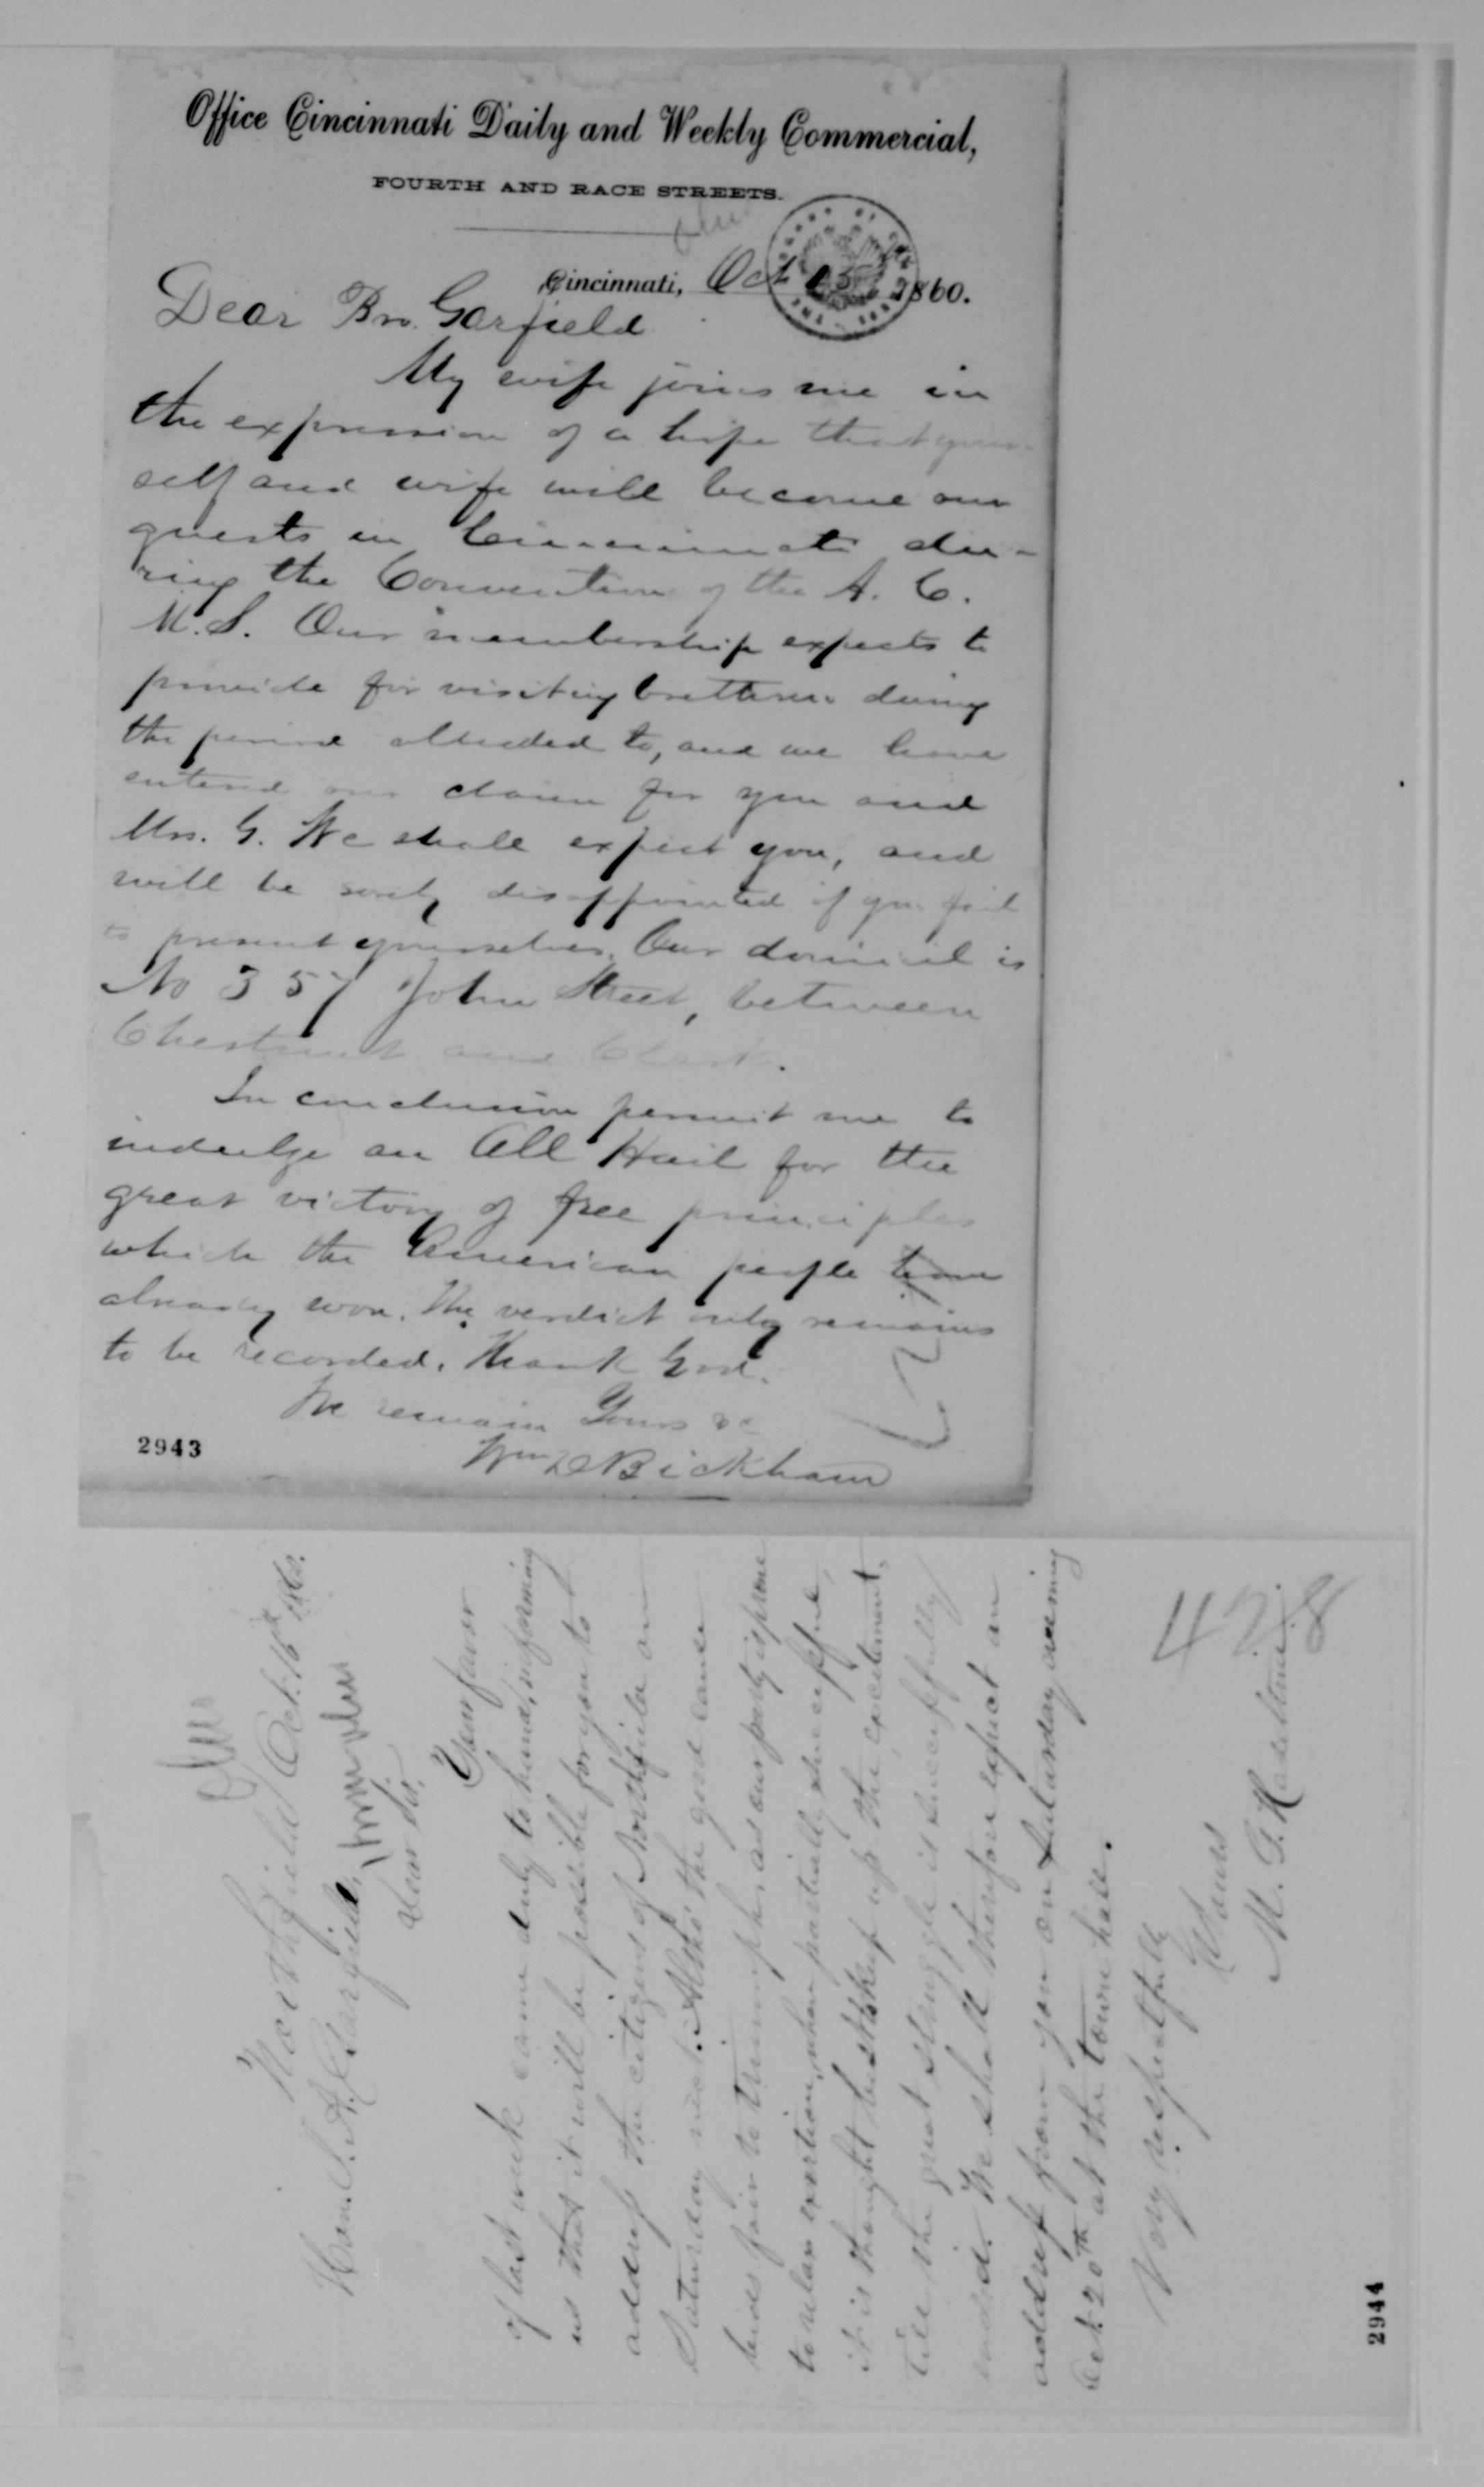 Office Cincinnati Daily and Weekly Commercial,
FOURTH AND RACE STREETS.
Ohio
Cincinnati, Oct 15 1860.
Dear Bro. Garfield
My wife joins me in
the expression of a hope that your-
self and wife will become our
guests in Cincinnati du-
ring the Convention of the A. C.
M. S. Our membership expects to
provide for visiting brethren during
the period alluded to, and we have
entered our claim for you and
Mrs. G. We shall expect you, and
will be sorely disappointed if you fail
to present yourselves. Our domicil is
No 357 John Street, between
Chestnut and Clark.
In conclusion permit me to
indulge an All Hail for the
great victory of free principles
which the American people have
already won. The verdict only remains
to be recorded. Thank God.
We remain Yours &c
Wm D Bickham
2943
Ohio
Northfield Oct. 16th 1860.
Hon. J. A. Garfield,
Dear Sir,
Your favor
of last week came duly to hand, informing
us that it will be possible for you to
address the citizens of Northfield on
Saturday next. Altho' the good cause
bids fair to triumph, as our party is prone
to relax exertion, when partially successful,
it is thought best to keep up the excitement,
till the great struggle is successfully
ended. We shall therefore expect an
address from you on Saturday evening
Oct. 20th at the town hall.
Very respectfully
Yours
M. G.
428
2944